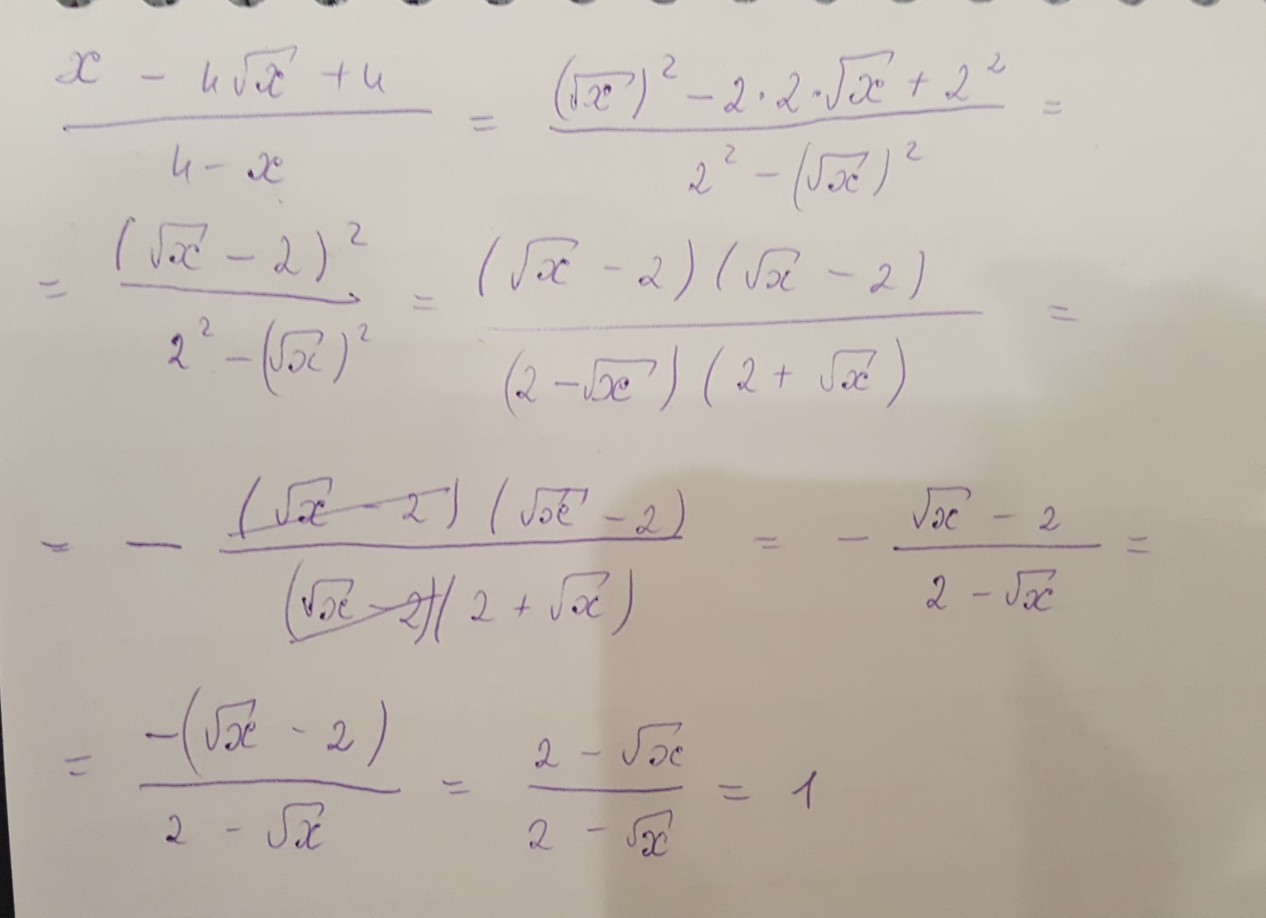 (x - 4√x + 4)/(4 - x) = ((√x)² - 2·2·√x + 2²)/(2² - (√x)²) =
= (√x - 2)²/(2² - (√x)²) = ((√x - 2)(√x - 2))/((2 - √x)(2 + √x)) =
= - ((√x - 2)(√x - 2))/((√x - 2)(2 + √x)) = - (√x - 2)/(2 - √x) =
= (-(√x - 2))/(2 - √x) = (2 - √x)/(2 - √x) = 1